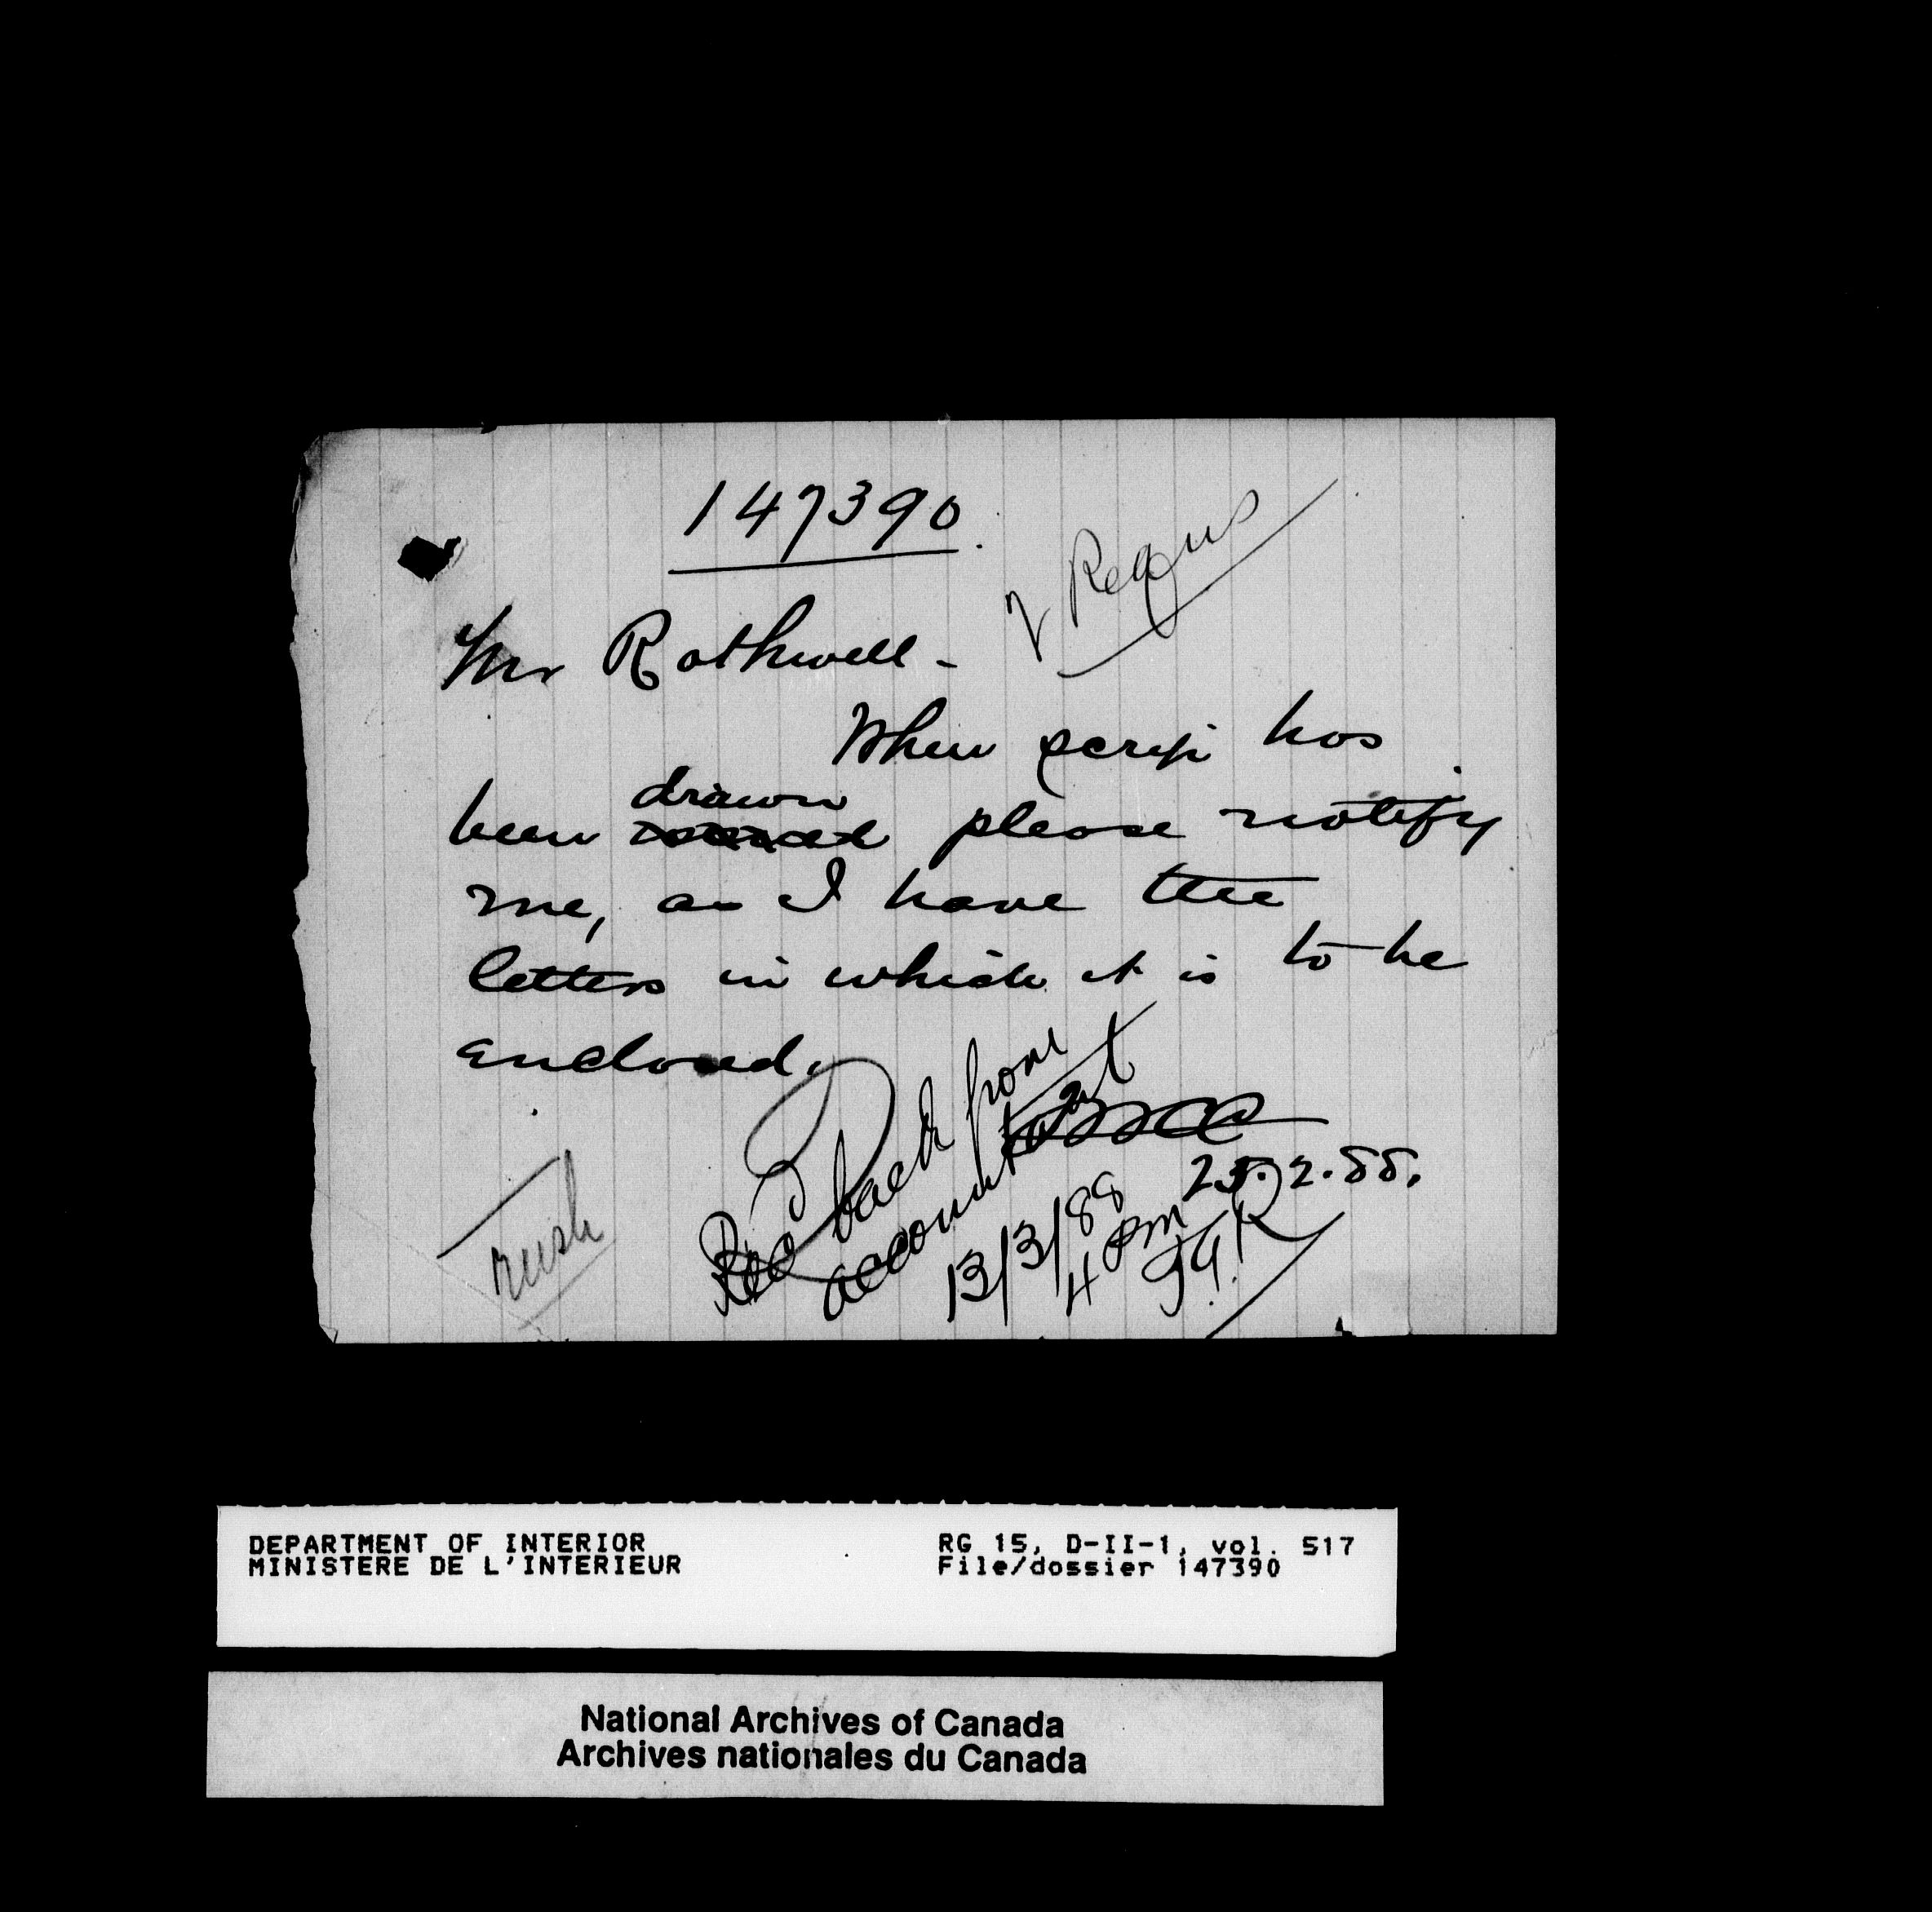 147390.
2 Requs
Mr Rothwell -
When scrip has
been drawn please notify
me, as I have the
letters in which it is to be
enclosed.
25.2.88.
Rec back from
accountant
13/3/88
4 pm
rush
DEPARTMENT OF INTERIOR
MINISTERE DE L'INTERIEUR
RG 15, D-II-1, vol. 517
File/dossier 147390
National Archives of Canada
Archives nationales du Canada